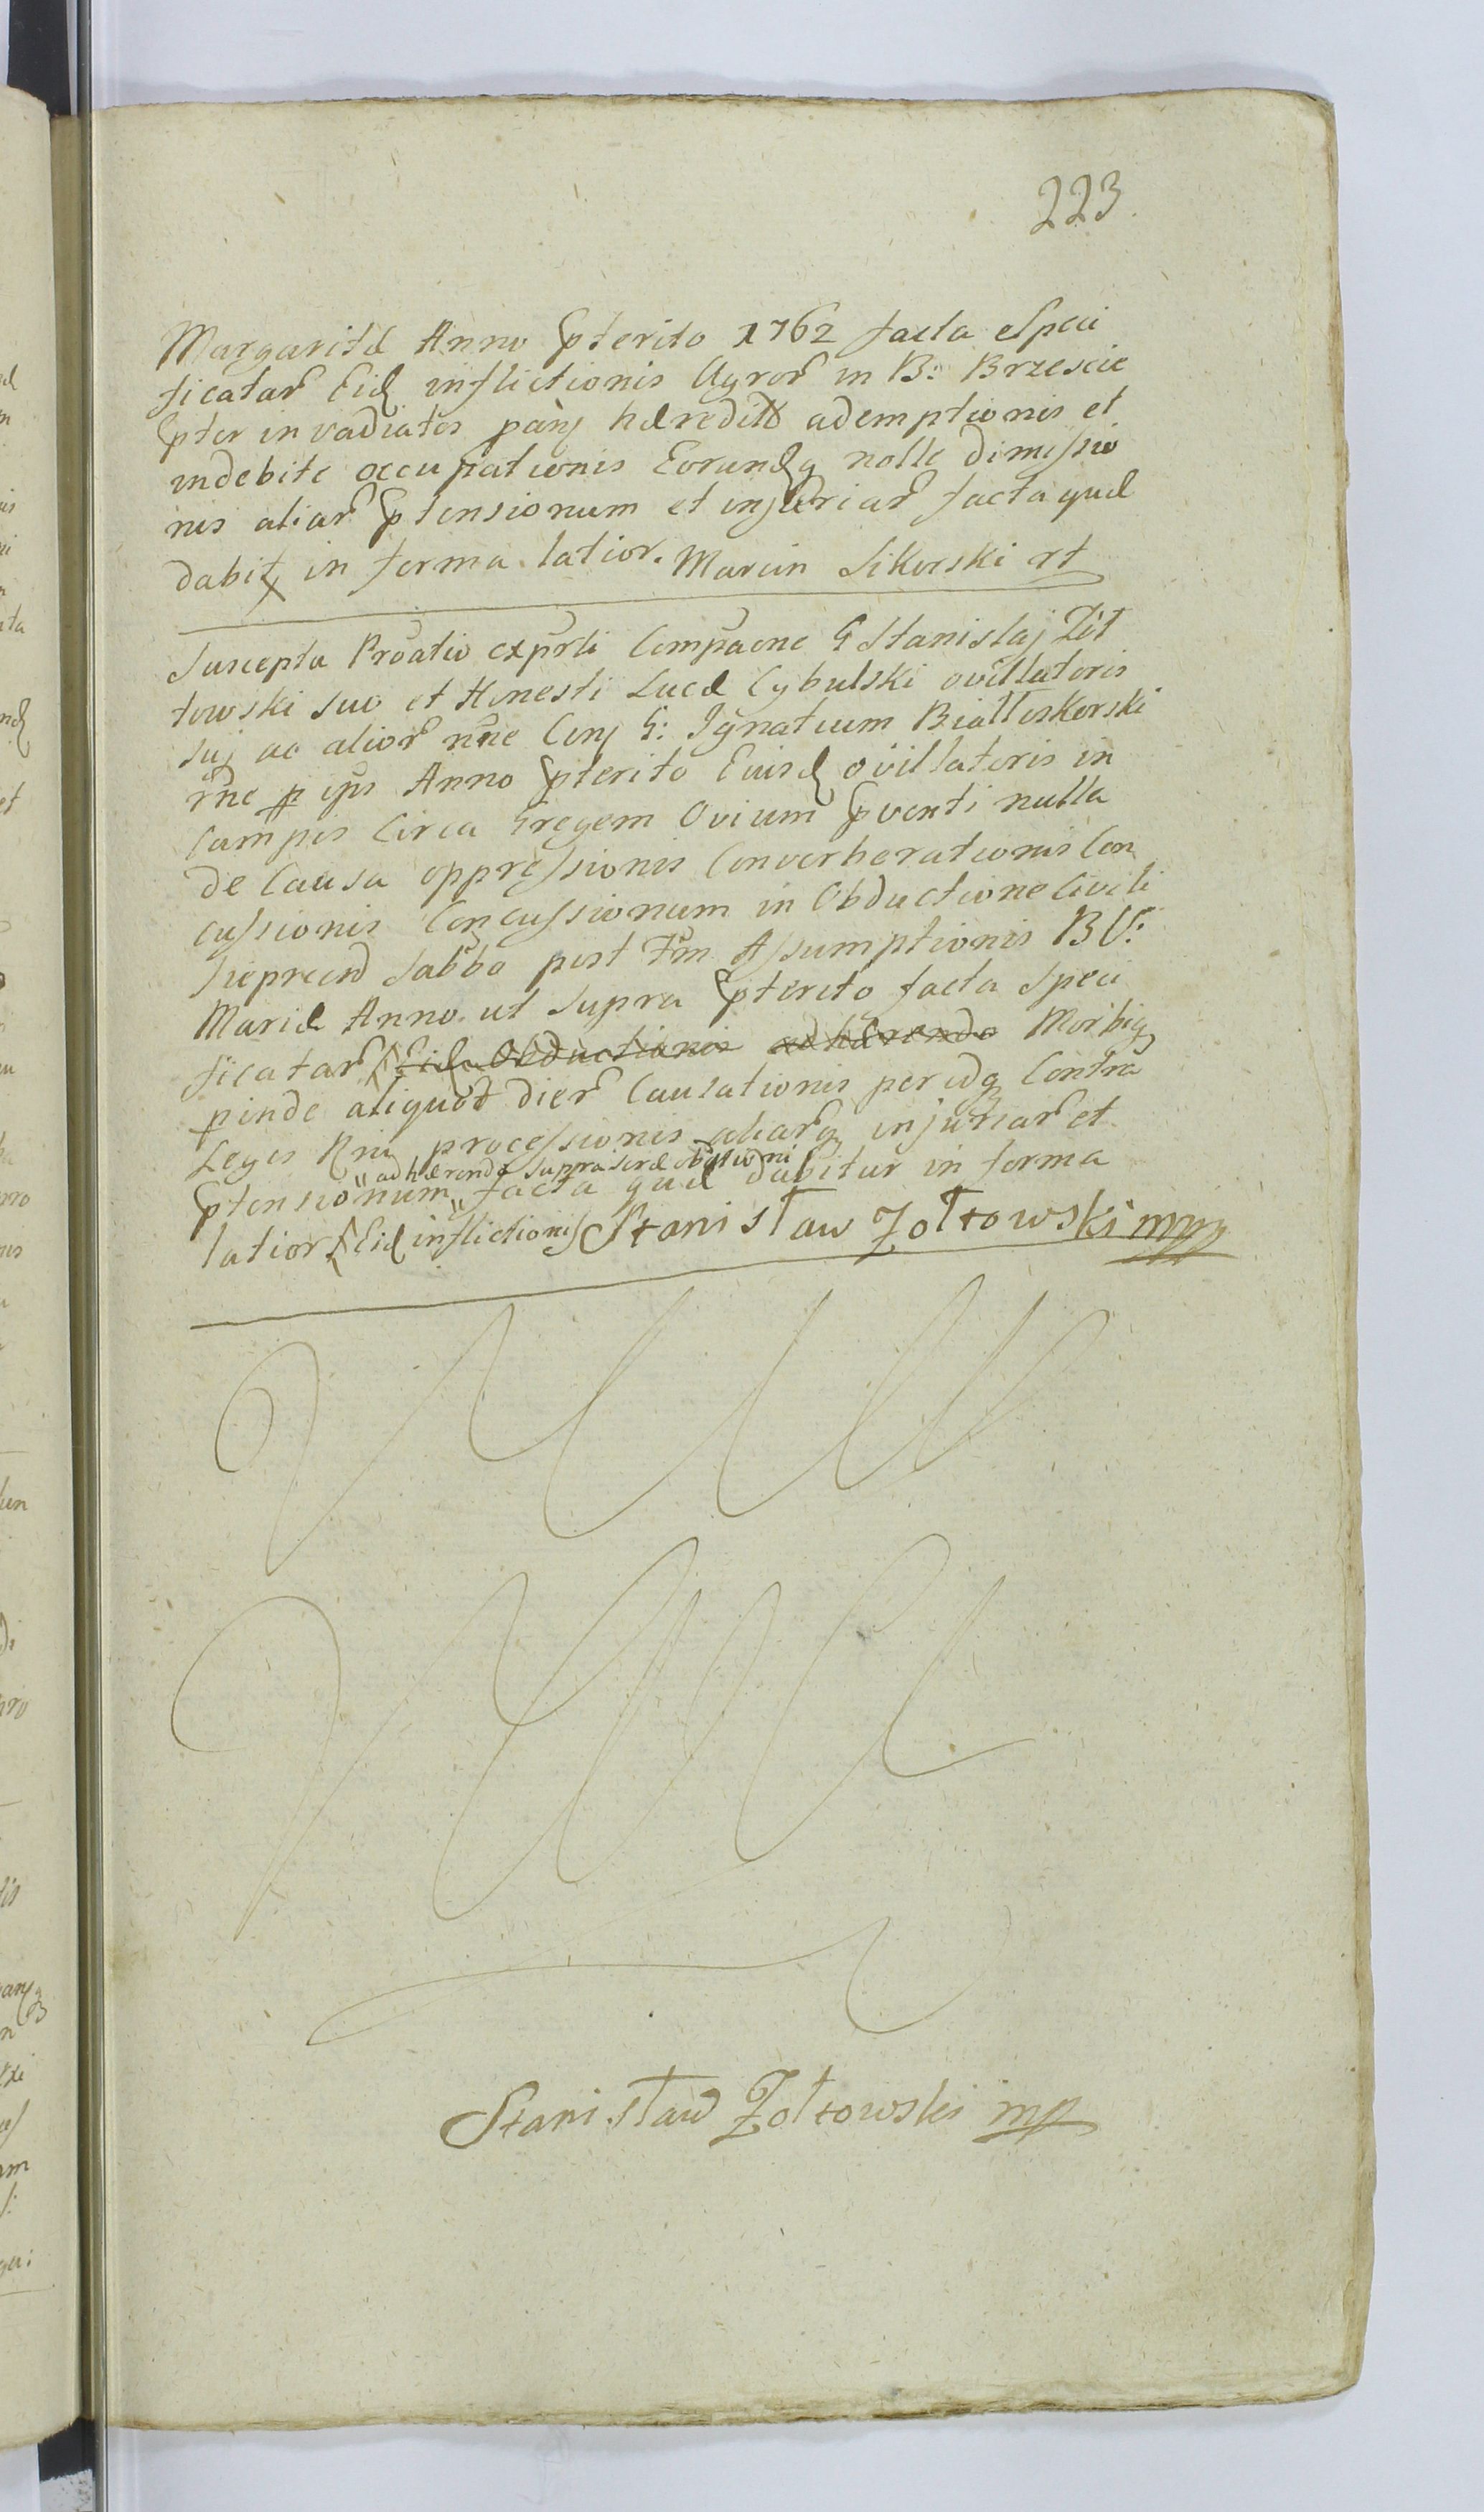 223.
Margaritæ Anno Pterito 1762 facta Speci
ficatar Eid inflictionis Agror in B: Brzescie
Pter invadiatos panj hæredit ademptionis et
indebite occupationis Eorundq nolle dimissio
nis aliar Ptensionum et injuriar facta quæ
dabit in forma latior. Marcin Sikorski rt
Suscepta Proatio exprti Compaone G Stanislaj Żół
towski suo et Honesti Lucæ Cybulski ovillatoris
suj ac alior nne Conj G: Ignatium Białłoskorski
rne p ips Anno Pterito Eiusd ovillatoris in
Campis Circa Gregem Ovium Pventi nulla
de Causa oppressionis Converberationis Con
cussionis Concussionum in Obductione Civili
Sieprcen Sabbo post Fm Assumptionis B V:
Mariæ Anno ut supra Pterito facta Speci
ficatar Eid Obductionis adhærendo Morbiq
pinde aliquot dier Causationis per idq Contra
Leges Rni processionis aliarq injuriar et
adhærendo supra seræ obdtioni
Ptensionum facta quæ dabitur in forma
latior Eid inflictionis Stanisław Zołtowski mpp
Stanisław Zołtowski mp